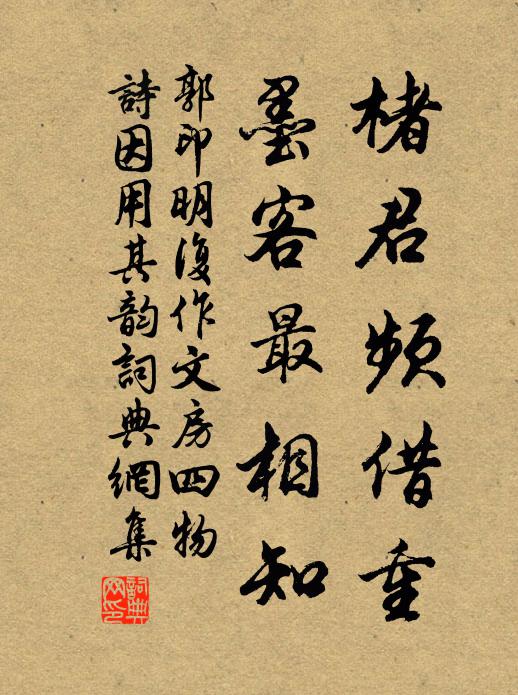 楮君频借重
墨客最相知
郭印明復作文房四物
詩因用其韵詞典網集
詞典网印